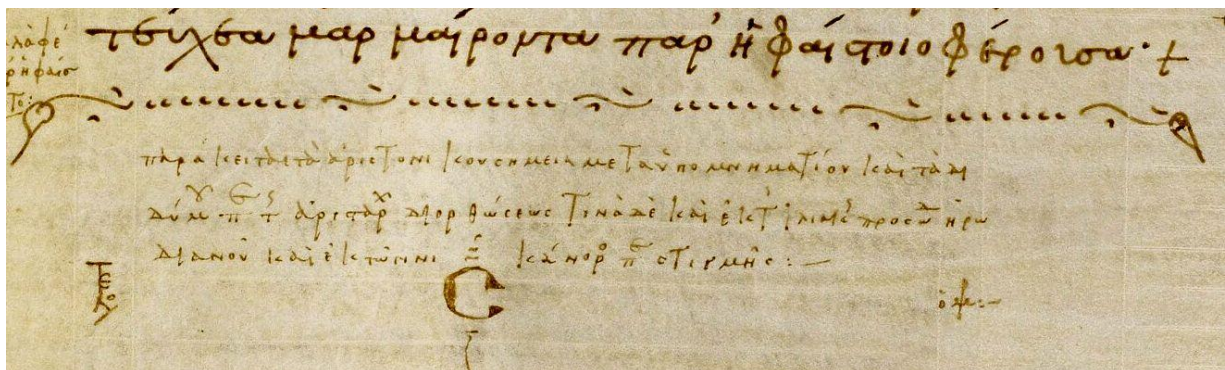 τεύχεα μαρμαίροντα παρ' Ἡφαίστοιο φέρουσα· +
παράκειται τὰ ἀριστονίκου σημεῖα μετὰ ὑπομνηματίου καὶ τὰ δι
δύμ π τ ἀρισταρχ διορθώσεως τινὰ δὲ καὶ ἐκ τ ἰλιακ προσωδ ἡρω
διανοῦ καὶ ἐκ τῶν νικάνορο π στιγμῆς: —
τέλος Σ